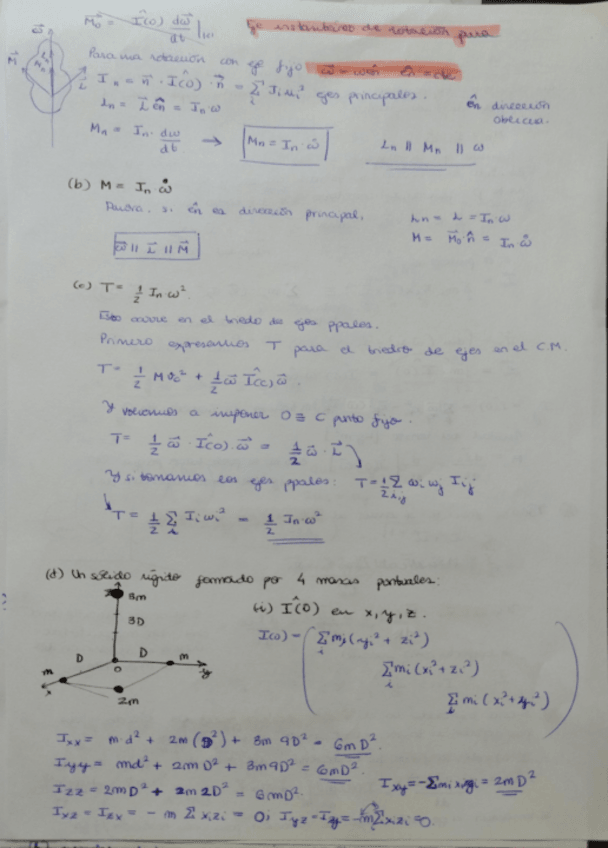 M₀ = Î(0) dω/dt
Eje instantáneo de rotación pura
Para una rotación con eje fijo ω⃗ = ωn̂ ên = cte
In = n⃗ · Î(0) · n⃗ = Σ Ii ui² ejes principales.
ên dirección oblicua.
Ln = L⃗ ên = In ω
Mn = In · dω/dt → Mn = In · ω̇
Ln || Mn || ω
(b) M = In ω̇
Ahora, si ên es dirección principal,
Ln = L = In ω
ω⃗ || L⃗ || M⃗
M = M⃗₀ · n̂ = In ω̇
(c) T = 1/2 In ω².
Esto ocurre en el triedro de ejes ppales.
Primero expresamos T para el triedro de ejes en el C.M.
T = 1/2 M vc² + 1/2 ω⃗ Î(C) ω⃗.
Y volvemos a imponer O ≡ C punto fijo.
T = 1/2 ω⃗ · Î(0) · ω⃗ = 1/2 ω⃗ · L⃗
Y si tomamos los ejes ppales: T = 1/2 Σ ωi ωj Iij
T = 1/2 Σ Ii ωi² = 1/2 In ω²
(d) Un sólido rígido formado por 4 masas puntuales:
3m
3D
D
D
m
m
O
x
y
2m
(i) Î(0) en x, y, z.
I(0) = Σ mi (yi² + zi²)
Σ mi (xi² + zi²)
Σ mi (xi² + yi²)
Ixx = m·d² + 2m(D²) + 3m 9D² = 6mD².
Iyy = md² + 2mD² + 3m9D² = 6mD².
Ixy = -Σ mi xi yi = 2mD²
Izz = 2mD² + 2m 2D² = 6mD².
Ixz = Izx = - m Σ xi zi = 0; Iyz = Izy = -m Σ xi zi = 0.